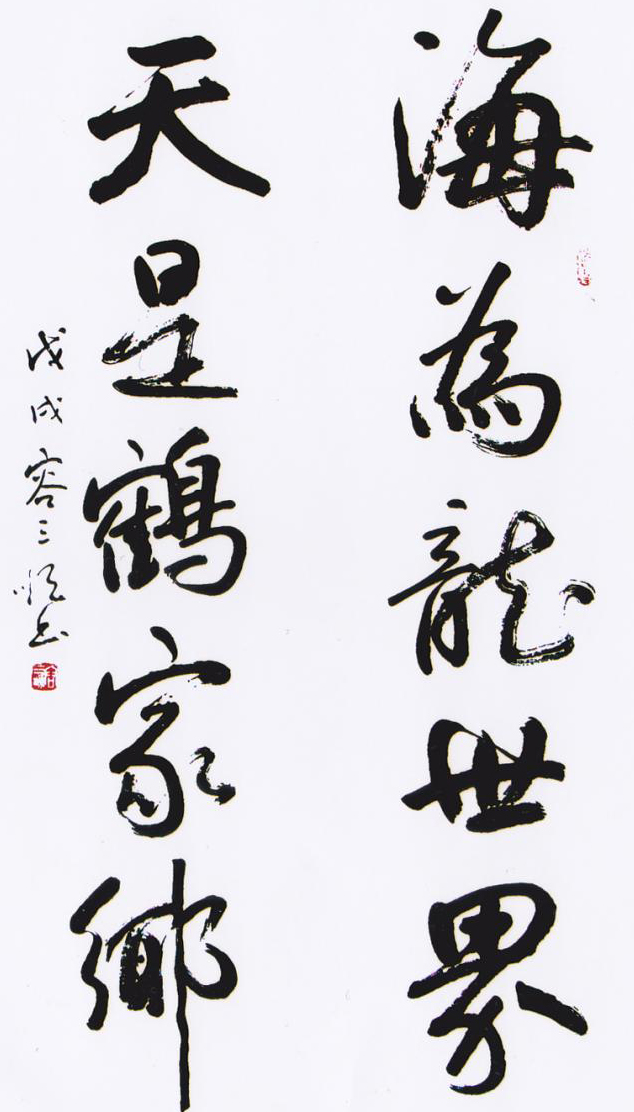 海為龍世界
天是鶴家鄉
戊戌容三悅书